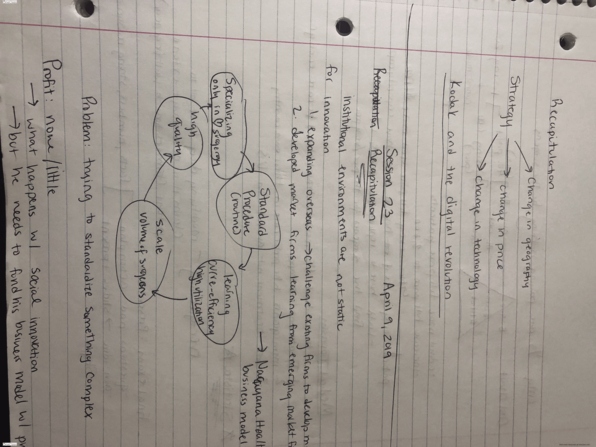 Recapitulation
Strategy → Change in geography
→ change in price
→ change in technology
Kodak and the digital revolution
Session 23 April 9, 2019
Recapitulation Recapitulation
Institutional environments are not static
for innovation
1. expanding overseas → challenge existing firms to develop
2. developed market firms learning from emerging market
→ Narayana Healt
business model
Standard
Procedure
(routine)
Specializing
only in surgery
high
quality
learning
curve-efficiency
high utilization
scale
volume of surgeons
Problem: trying to standardize something complex
Profit: none/little
→ what happens w/ social innovation
→ but he needs to fund his business model w/